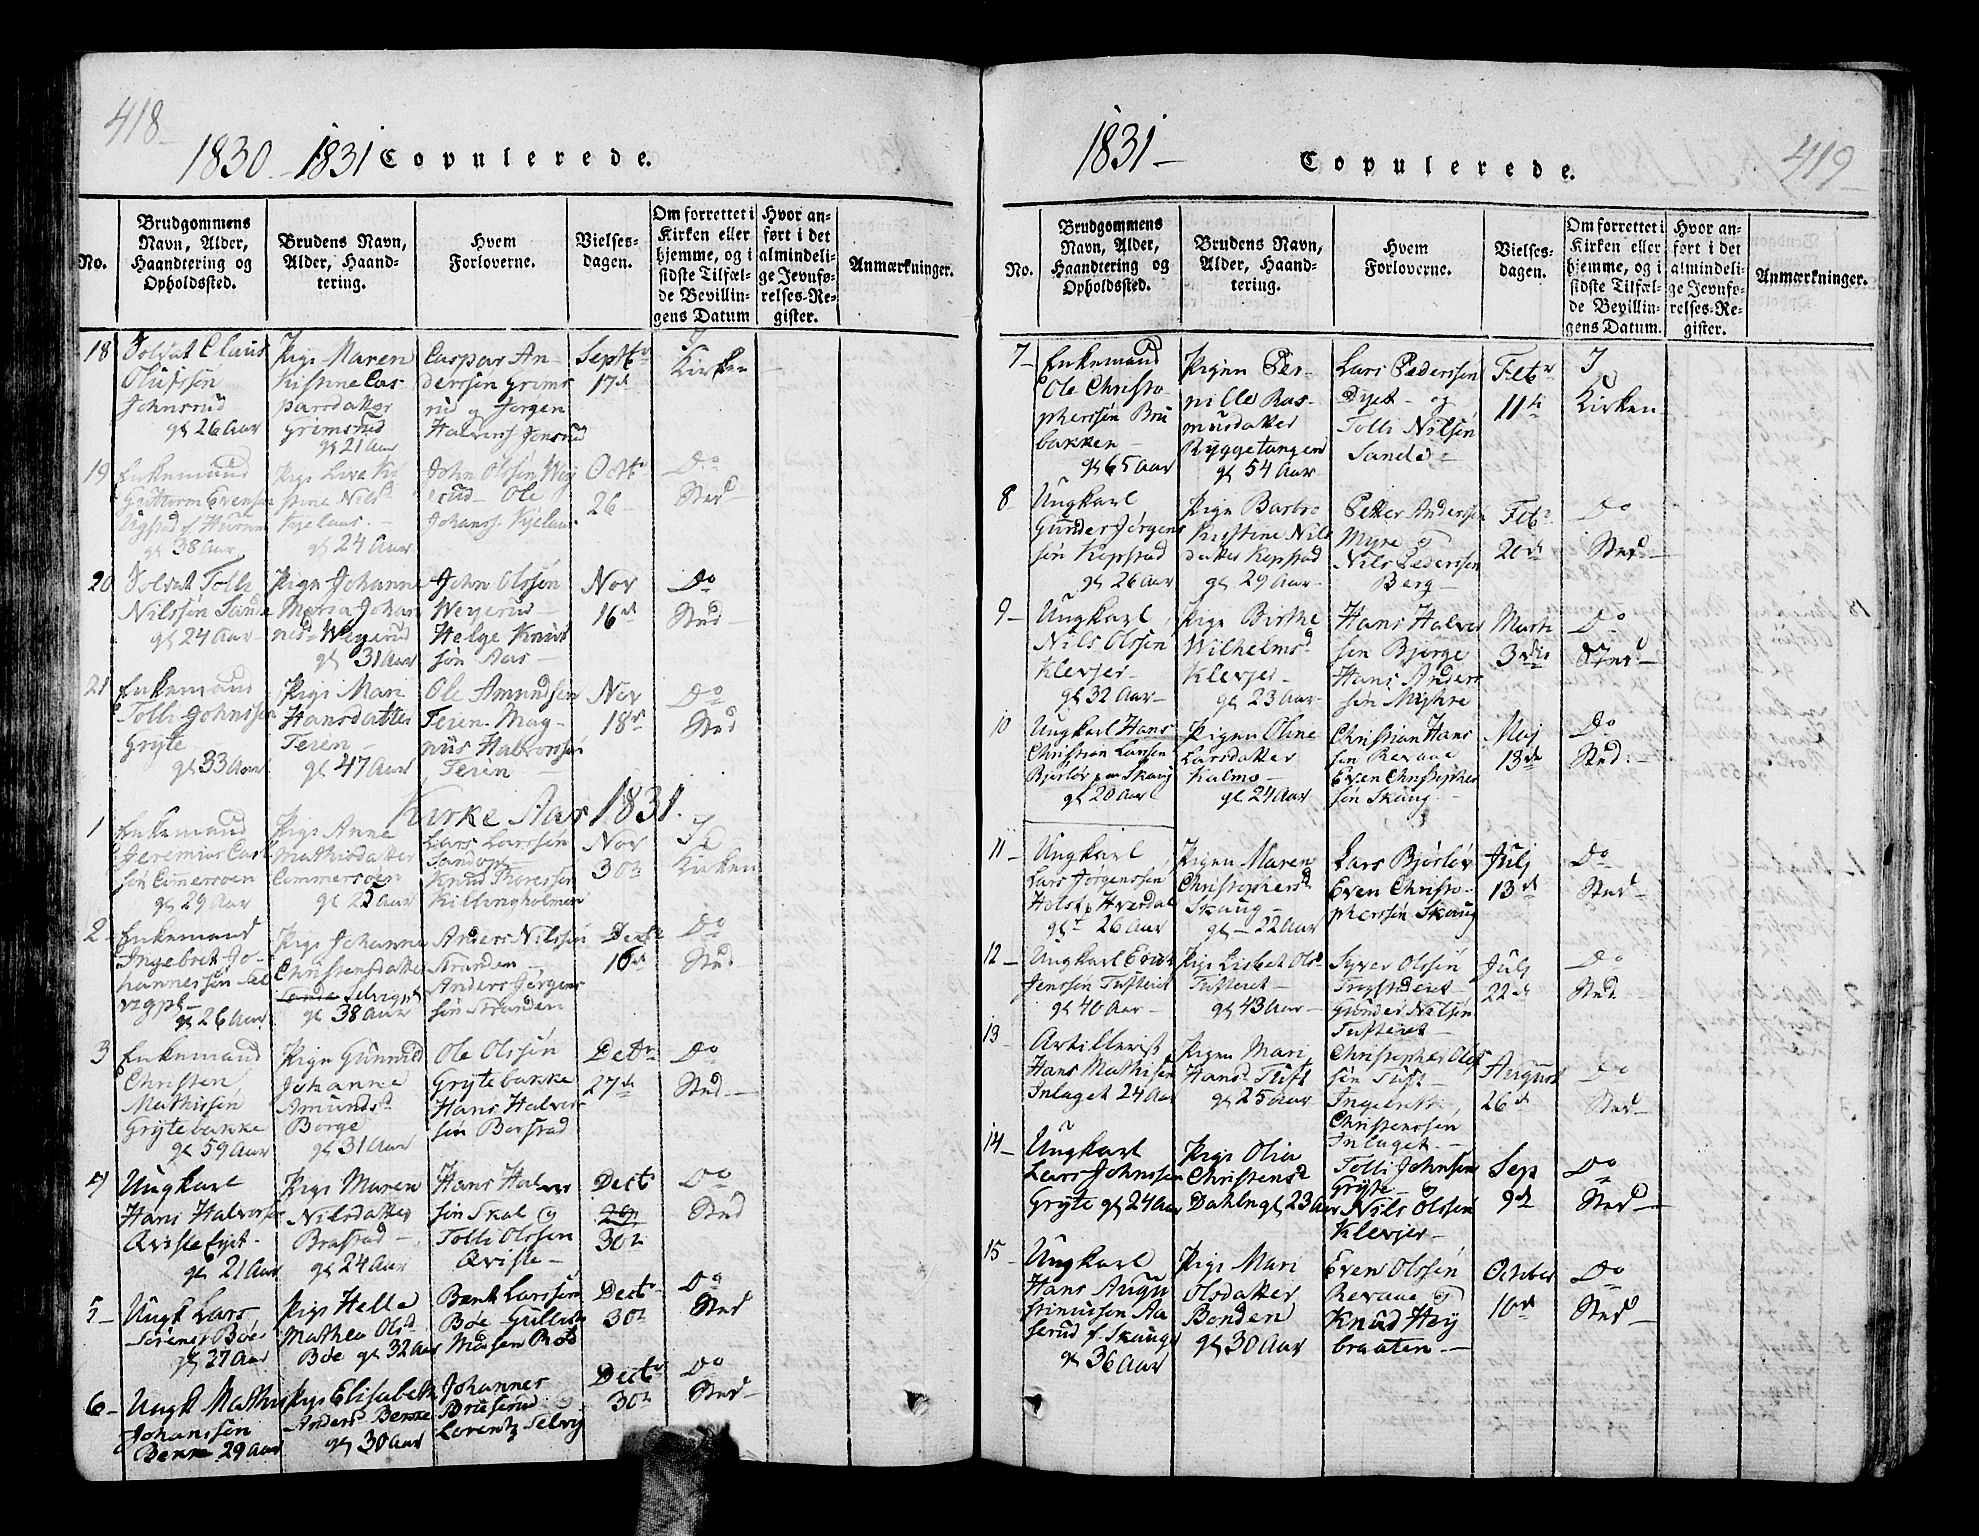 418
1830 - 1831 Copulerede.
No.
Brudgommens Navn, Alder, Haandtering og Opholdssted.
Brudens Navn, Alder, Haandtering.
Hvem Forloverne.
Vielsesdagen.
Om forrettet i Kirken eller hjemme, og i sidste Tilfælde Bevillingens Datum
Hvor anført i det almindelige Jevnførelses-Register.
Anmærkninger.
18
Soldat Claus
Olufssøn
Johnsrud
gl 26 Aar
Pige Maren
Kistine Cas-
parsdatter
Grimsrud
gl 21 Aar
Caspar An-
derssøn Grims
rud og Jørgen
Halvors. Jonsrud
Septbr
17de
I
Kirken
19
Enkemand
Guttorm Evensen
gl 38 Aar
Pige Live Ki
stine Nilsd
Kjelaas.
gl 24 Aar
John Olssøn Wey
erud - Ole
Johanss. Kjelaas
Octr
26
Do
Sted
20
Soldat Tolli
Nilssøn Sande
gl 24 Aar
Pige Johanne
Maria Johan
nesd Weyerud
gl 31 Aar
John Olssøn
Weyerud
Helge Knud
søn Aas
Nov
16de
Do
Sted
21
Enkemand
Tolli Johnssøn
Gryte
gl 33 Aar
Pige Mari
Hansdatter
Teien
gl 47 Aar
Ole Amundsen
Teien. Mag-
nus Halvorssøn
Teien
Nov
18de
Do
Sted
Kirke Aar 1831.
1
Enkemand
Jeremias Carl
søn Cimersøen
gl 29 Aar
Pige Anne
Mathisdatter
Cimmersøen
gl 25 Aar
Lars Larssøn
Knud Thoressøn
Killingholmen
Nov
30te
I
Kirken
2
Enkemand
Ingebret Jo-
hannessøn Sel
vigpl
gl 26 Aar
Pige Johanne
Christensdatter
Sande Selvigpl
gl 38 Aar
Anders Nilssøn
Stranden
Anders Jørgens
søn Stranden
Decbr
10de
Do
Sted
3
Enkemand
Christen
Mathissen
Grytebakke
gl 59 Aar
Pige Gunnild
Johanne
Amundsd
Borge
gl 31 Aar
Ole Olssøn
Grytebakke
Hans Halvor
søn Borstad
Decr
27de
Do
Sted
4
Ungkarl
Hans Halvorssøn
Qvisle Eyet
gl 21 Aar
Pige Maren
Nilsdatter
Brastad
gl 24 Aar
Hans Halvor
søn Skal og
Tolli Olssøn
Qvisle
Decbr
29
30te
Do
Sted
5
Ungk Lars
Sørens Bøe
gl 27 Aar
Pige Helle
Mathea Olsd
Bøe gl 32 Aar
Bent Larssøn
Bøe
Decbr
30te
Do
Sted
6
Ungk Mathis
Johanssøn
Bekke 29 Aar
Pige Elisabeth
Andersd Bekke
gl 30 Aar
Johannes
Bruserud
Lorentz Selvig
Decbr
30te
Do
Sted
1831
Copulerede.
419
No.
Brudgommens Navn, Alder, Haandtering og Opholdssted.
Brudens Navn, Alder, Haandtering.
Hvem Forloverne.
Vielsesdagen.
Om forrettet i Kirken eller hjemme, og i sidste Tilfælde Bevillingens Datum.
Hvor anført i det almindelige Jevnførelses-Register.
Anmærkninger.
7
Enkemand
Ole Christo-
pherssøn Bru
bakken
gl 65 Aar
Pigen Per-
nille Ras-
musdatter
Ryggetangen
gl 54 Aar
Lars Pederssøn
Dyet og
Tolli Nilsøn
Sande
Febr
11te
I
Kirken
8
Ungkarl
Gunder Jørgens
søn Kopstad
gl 26 Aar
Pigen Barbro
Kristine Nils
datter Kopstad
gl 29 Aar
Petter Anderssen
Myre og
Nils Pederssøn
Berg
Febr
20de
Do
Sted
9
Ungkarl
Nils Olssøn
Klevjer
gl 32 Aar
Pige Birthe
Wilhelmsd
Klevjer
gl 23 Aar
Hans Halvor
søn Bjerge
Hans Anders
søn Myhre
Marti
3die
Do
Sted
10
Ungkarl Hans
Christian Larsen
Bjørløv paa Skaug
gl 20 Aar
Pigen Oline
Larsdatter
Holmo
gl 24 Aar
Christian Hans
søn Revaae
Even Christopher
søn Skaug
Maj
13de
Do
Sted
11
Ungkarl
Lars Jørgenssøn
gl 26 Aar
Pigen Maren
Christophersd
Skaug
gl 22 Aar
Lars Bjørløv
Even Christo-
pherssøn Skaug
Julj
13de
Do
Sted
12
Ungkarl Even
Jenssøn Tufteret
gl 40 Aar
Pige Lisbet Olsd
Tufteret
gl 43 Aar
Syver Olssøn
Gunder Nilsøn
Tufteret
Julj
22de
Do
Sted
13
Artillerist
Hans Mathisøn
Inlaget 24 Aar
Pigen Mari
Hansd Tuft
gl 25 Aar
Christopher Ols
søn Tuft
Ingebret
Christenssøn
Inlaget
August
26de
Do
Sted
14
Ungkarl
Lars Johnssøn
Gryte gl 24 Aar
Pige Olia
Christensd
Dahlen gl 23 Aar
Tolli Johnsøn
Gryte og
Nils Olssøn
Klevjer
Sep
9de
Do
Sted
15
Ungkarl
Hans Augu
stinussen Aa
serud f. Skauge
gl 36 Aar
Pige Mari
Olsdatter
Bonden
gl 30 Aar
Even Olssøn
Revaae og
Knud Høy
braaten
October
10de
Do
Sted